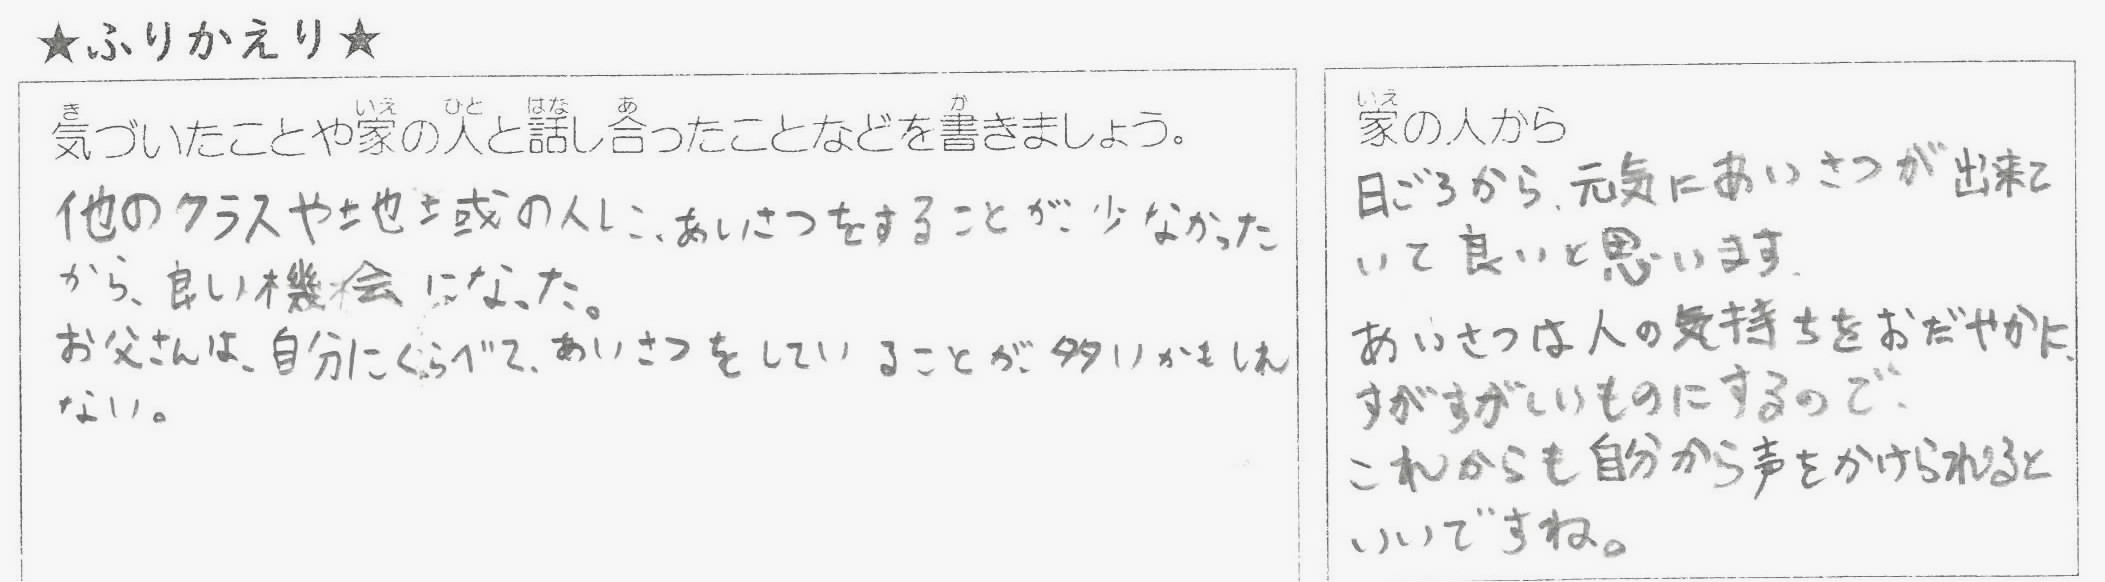 ★ふりかえり★
気づいたことや家の人と話し合ったことなどを書きましょう。
他のクラスや地域の人に、あいさつをすることが、少なかった
から、良い機会になった。
お父さんは、自分にくらべて、あいさつをしていることが、多いかもしれ
ない。
家の人から
日ごろから、元気にあいさつが出来て
いて良いと思います。
あいさつは人の気持ちをおだやかに、
すがすがしいものにするので、
これからも自分から声をかけられると
いいですね。